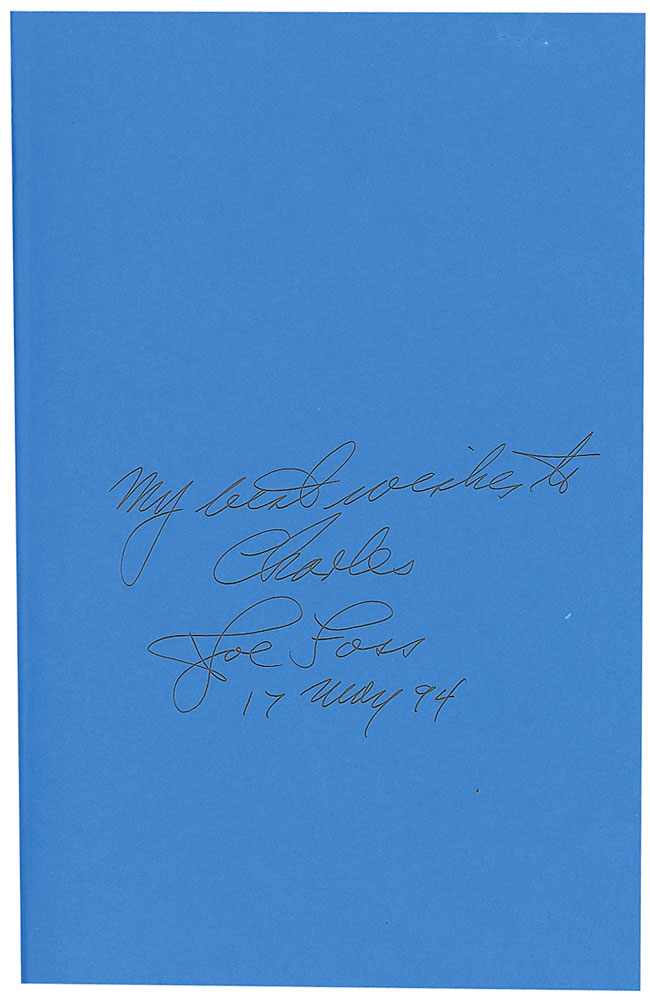 My best wishes to
Charles
Joe Foss
17 May 94